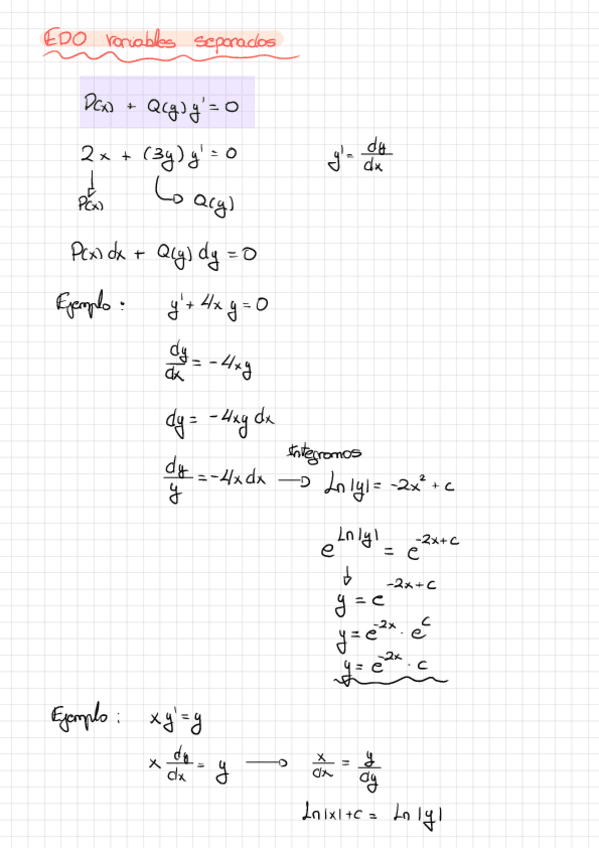 EDO variables separadas
P(x) + Q(y) y' = 0
2x + (3y) y' = 0
y' = dy/dx
P(x)
Q(y)
P(x) dx + Q(y) dy = 0
Ejemplo: y' + 4x y = 0
dy/dx = -4xy
dy = -4xy dx
Integramos
dy/y = -4x dx → Ln|y| = -2x² + c
e^Ln|y| = e^-2x+c
↓
y = e^-2x+c
y = e^-2x · e^c
y = e^-2x · c
Ejemplo: x y' = y
x dy/dx = y → x/dx = y/dy
Ln|x| + c = Ln|y|